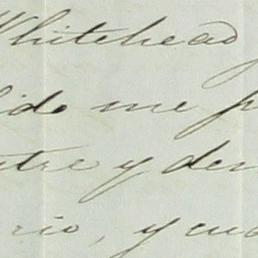 Whitehead
ide me p
tre y den
rio, y cua